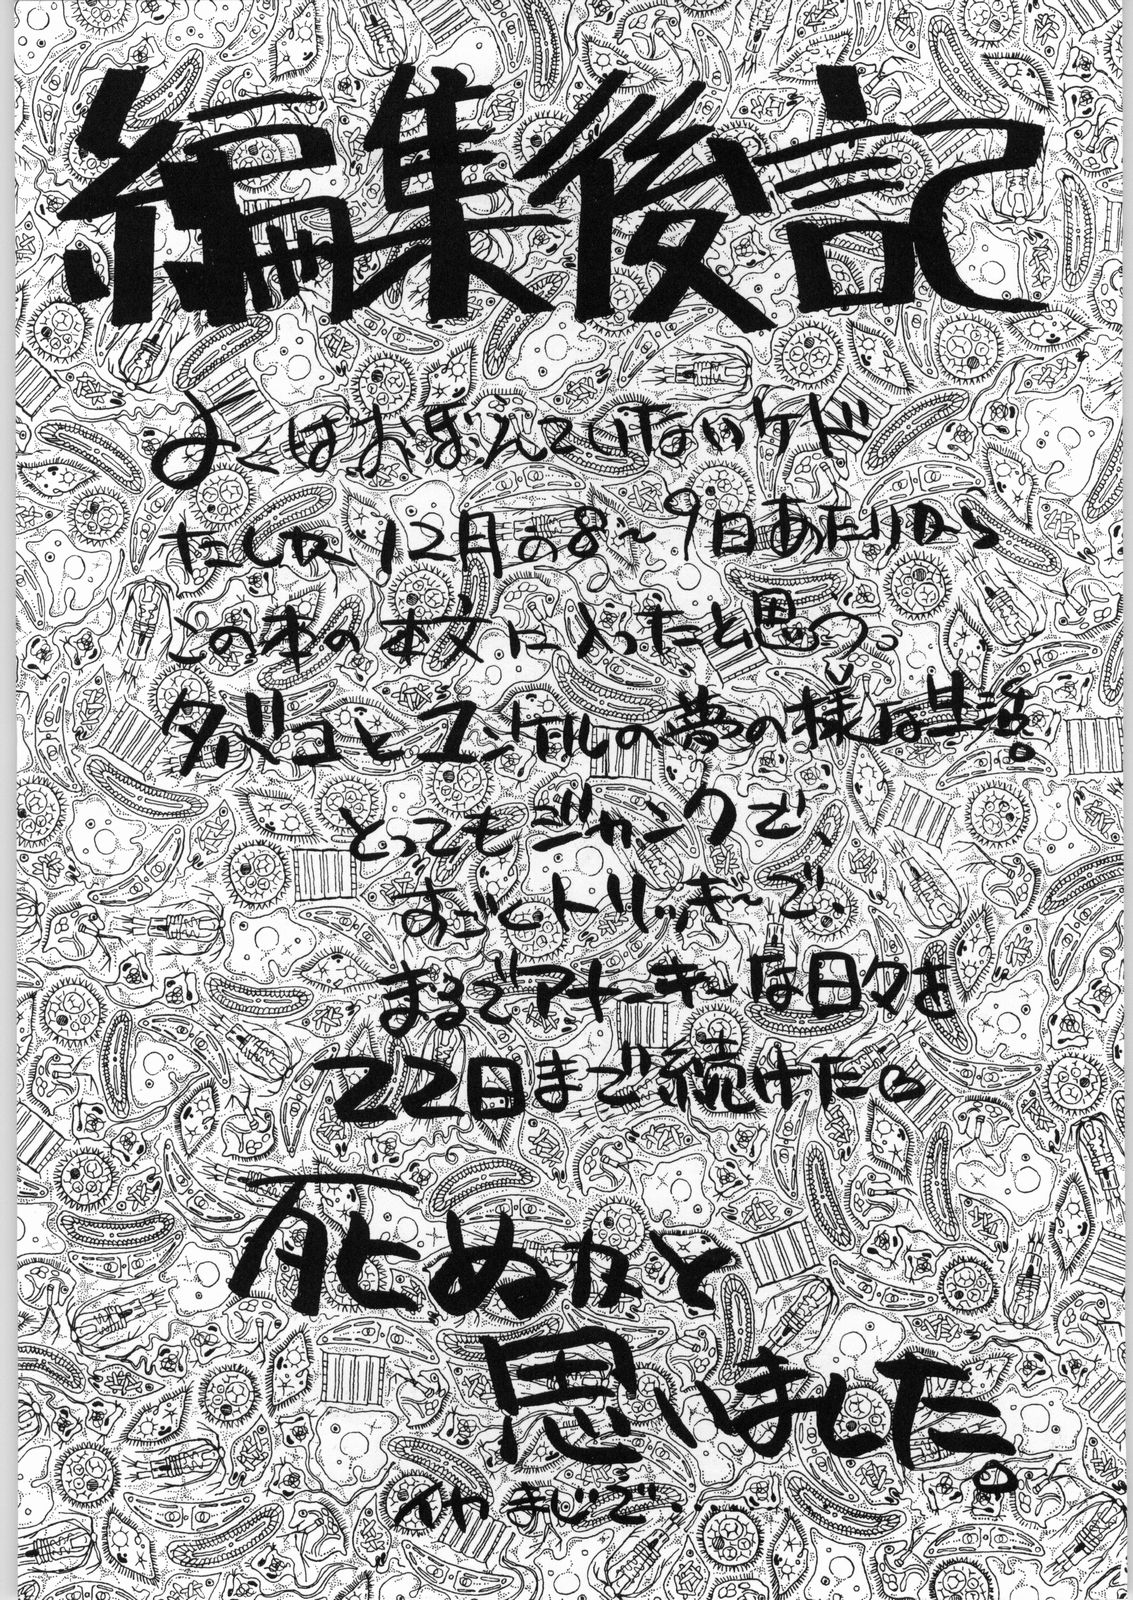 編集後記
よくはおぼえていないケド
たしか12月の8〜9日あたりから
この本の本文に入ったと思う。
タバコとユンケルの夢の様な生活。
とってもジャンクで、
すごくトリッキーで、
まるでアナーキーな日々を
22日まで続けたら
死ぬかと
思いました。
イヤまじで…